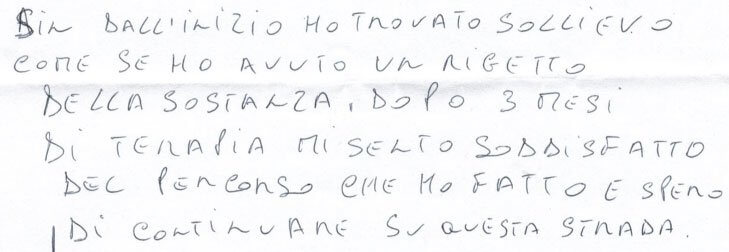 SIN DALL'INIZIO HO TROVATO SOLLIEVO
COME SE HO AVUTO UN RIGETTO
DELLA SOSTANZA, DOPO 3 MESI
DI TERAPIA MI SENTO SODDISFATTO
DEL PERCORSO CHE HO FATTO E SPERO
DI CONTINUARE SU QUESTA STRADA.